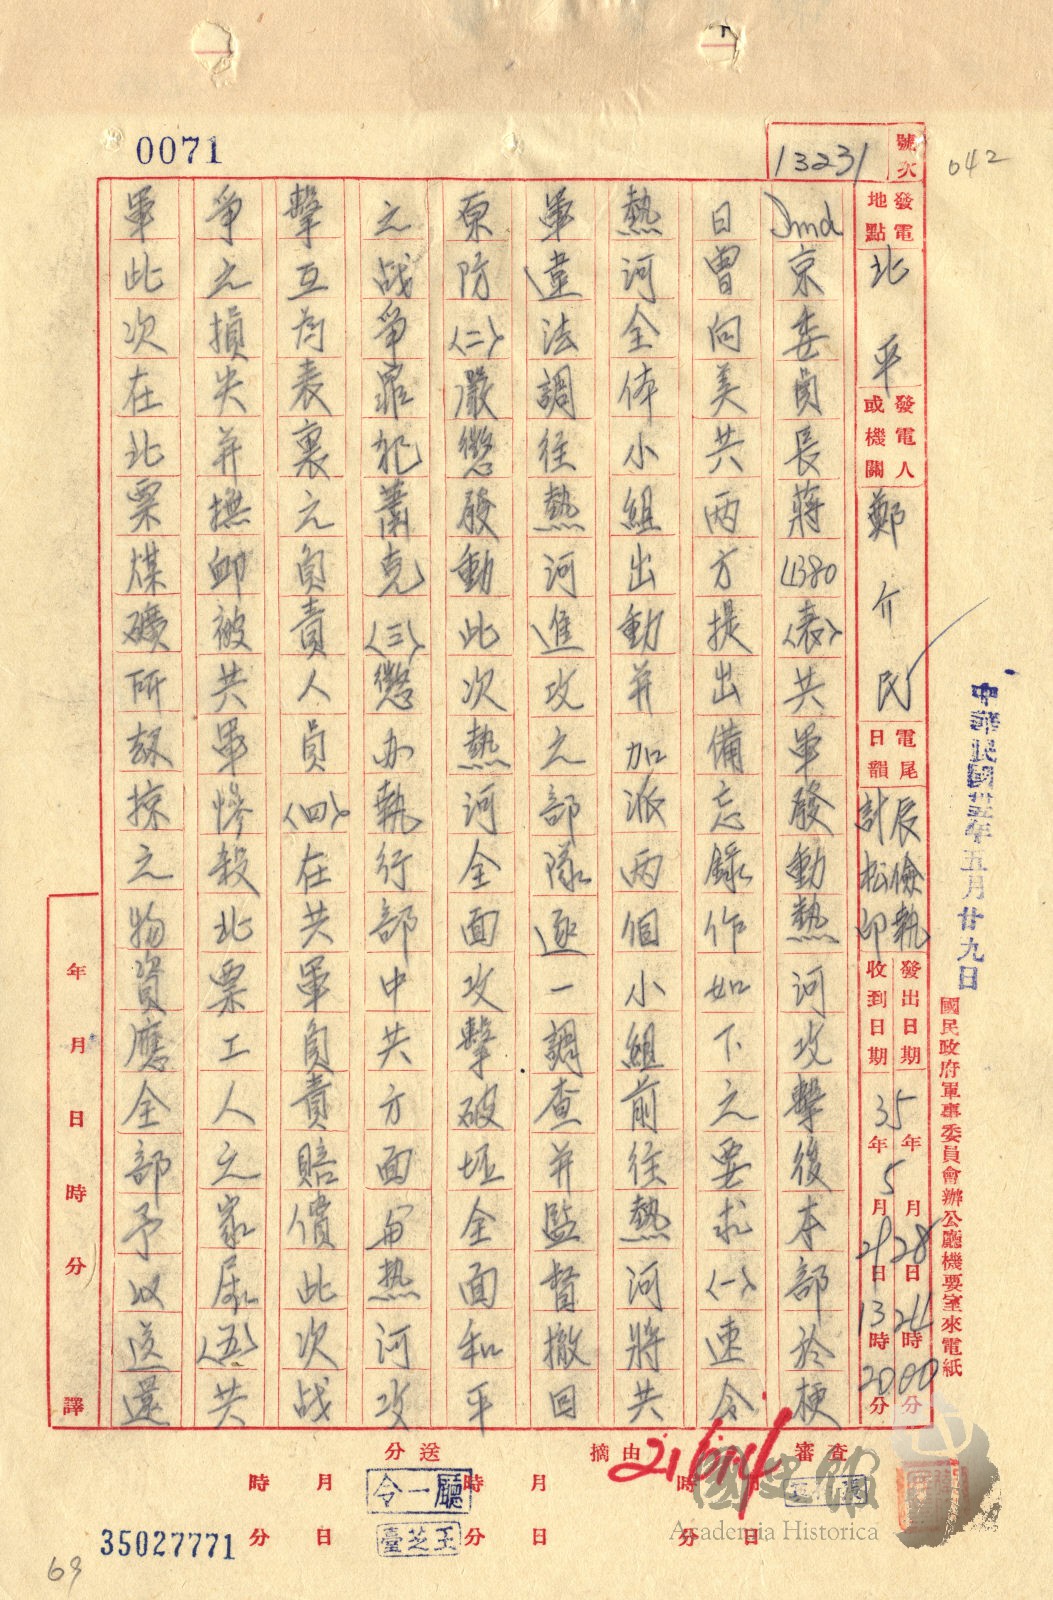 0071
042
號次 13231
發電地點 北平
發電人或機關 鄭介民
電尾日韻 辰儉執計松印
發出日期 35年5月28日24時00分
收到日期 29日13時20分
中華民國卅五年五月廿九日
國民政府軍事委員會辦公廳機要室來電紙
京委員長蔣(1380)(表)共軍發動熱河攻擊後本部於梗
日曾向美共兩方提出備忘錄作如下之要求(一)速令
熱河全体小組出動并加派兩個小組前往熱河將共
軍違法調往熱河進攻之部隊逐一調查并監督撤回
原防(二)嚴懲發動此次熱河全面攻擊破坏全面和平
之战爭罪犯蕭克(三)懲办執行部中共方面与热河攻
擊互為表裏之負責人員(四)在共軍負責賠償此次战
爭之損失并撫卹被共軍慘殺北票工人之家屬(五)共
軍此次在北票煤礦所刼掠之物資應全部予以送還
年月日時分 譯
審查
摘由
分送
月日時分
21614
令一廳
王芝臺
35027771
69
國史館
Academia Historica